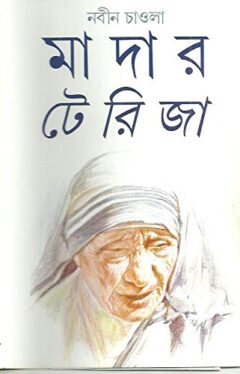 নবীন চাওলা
মা দা র
টে রি জা